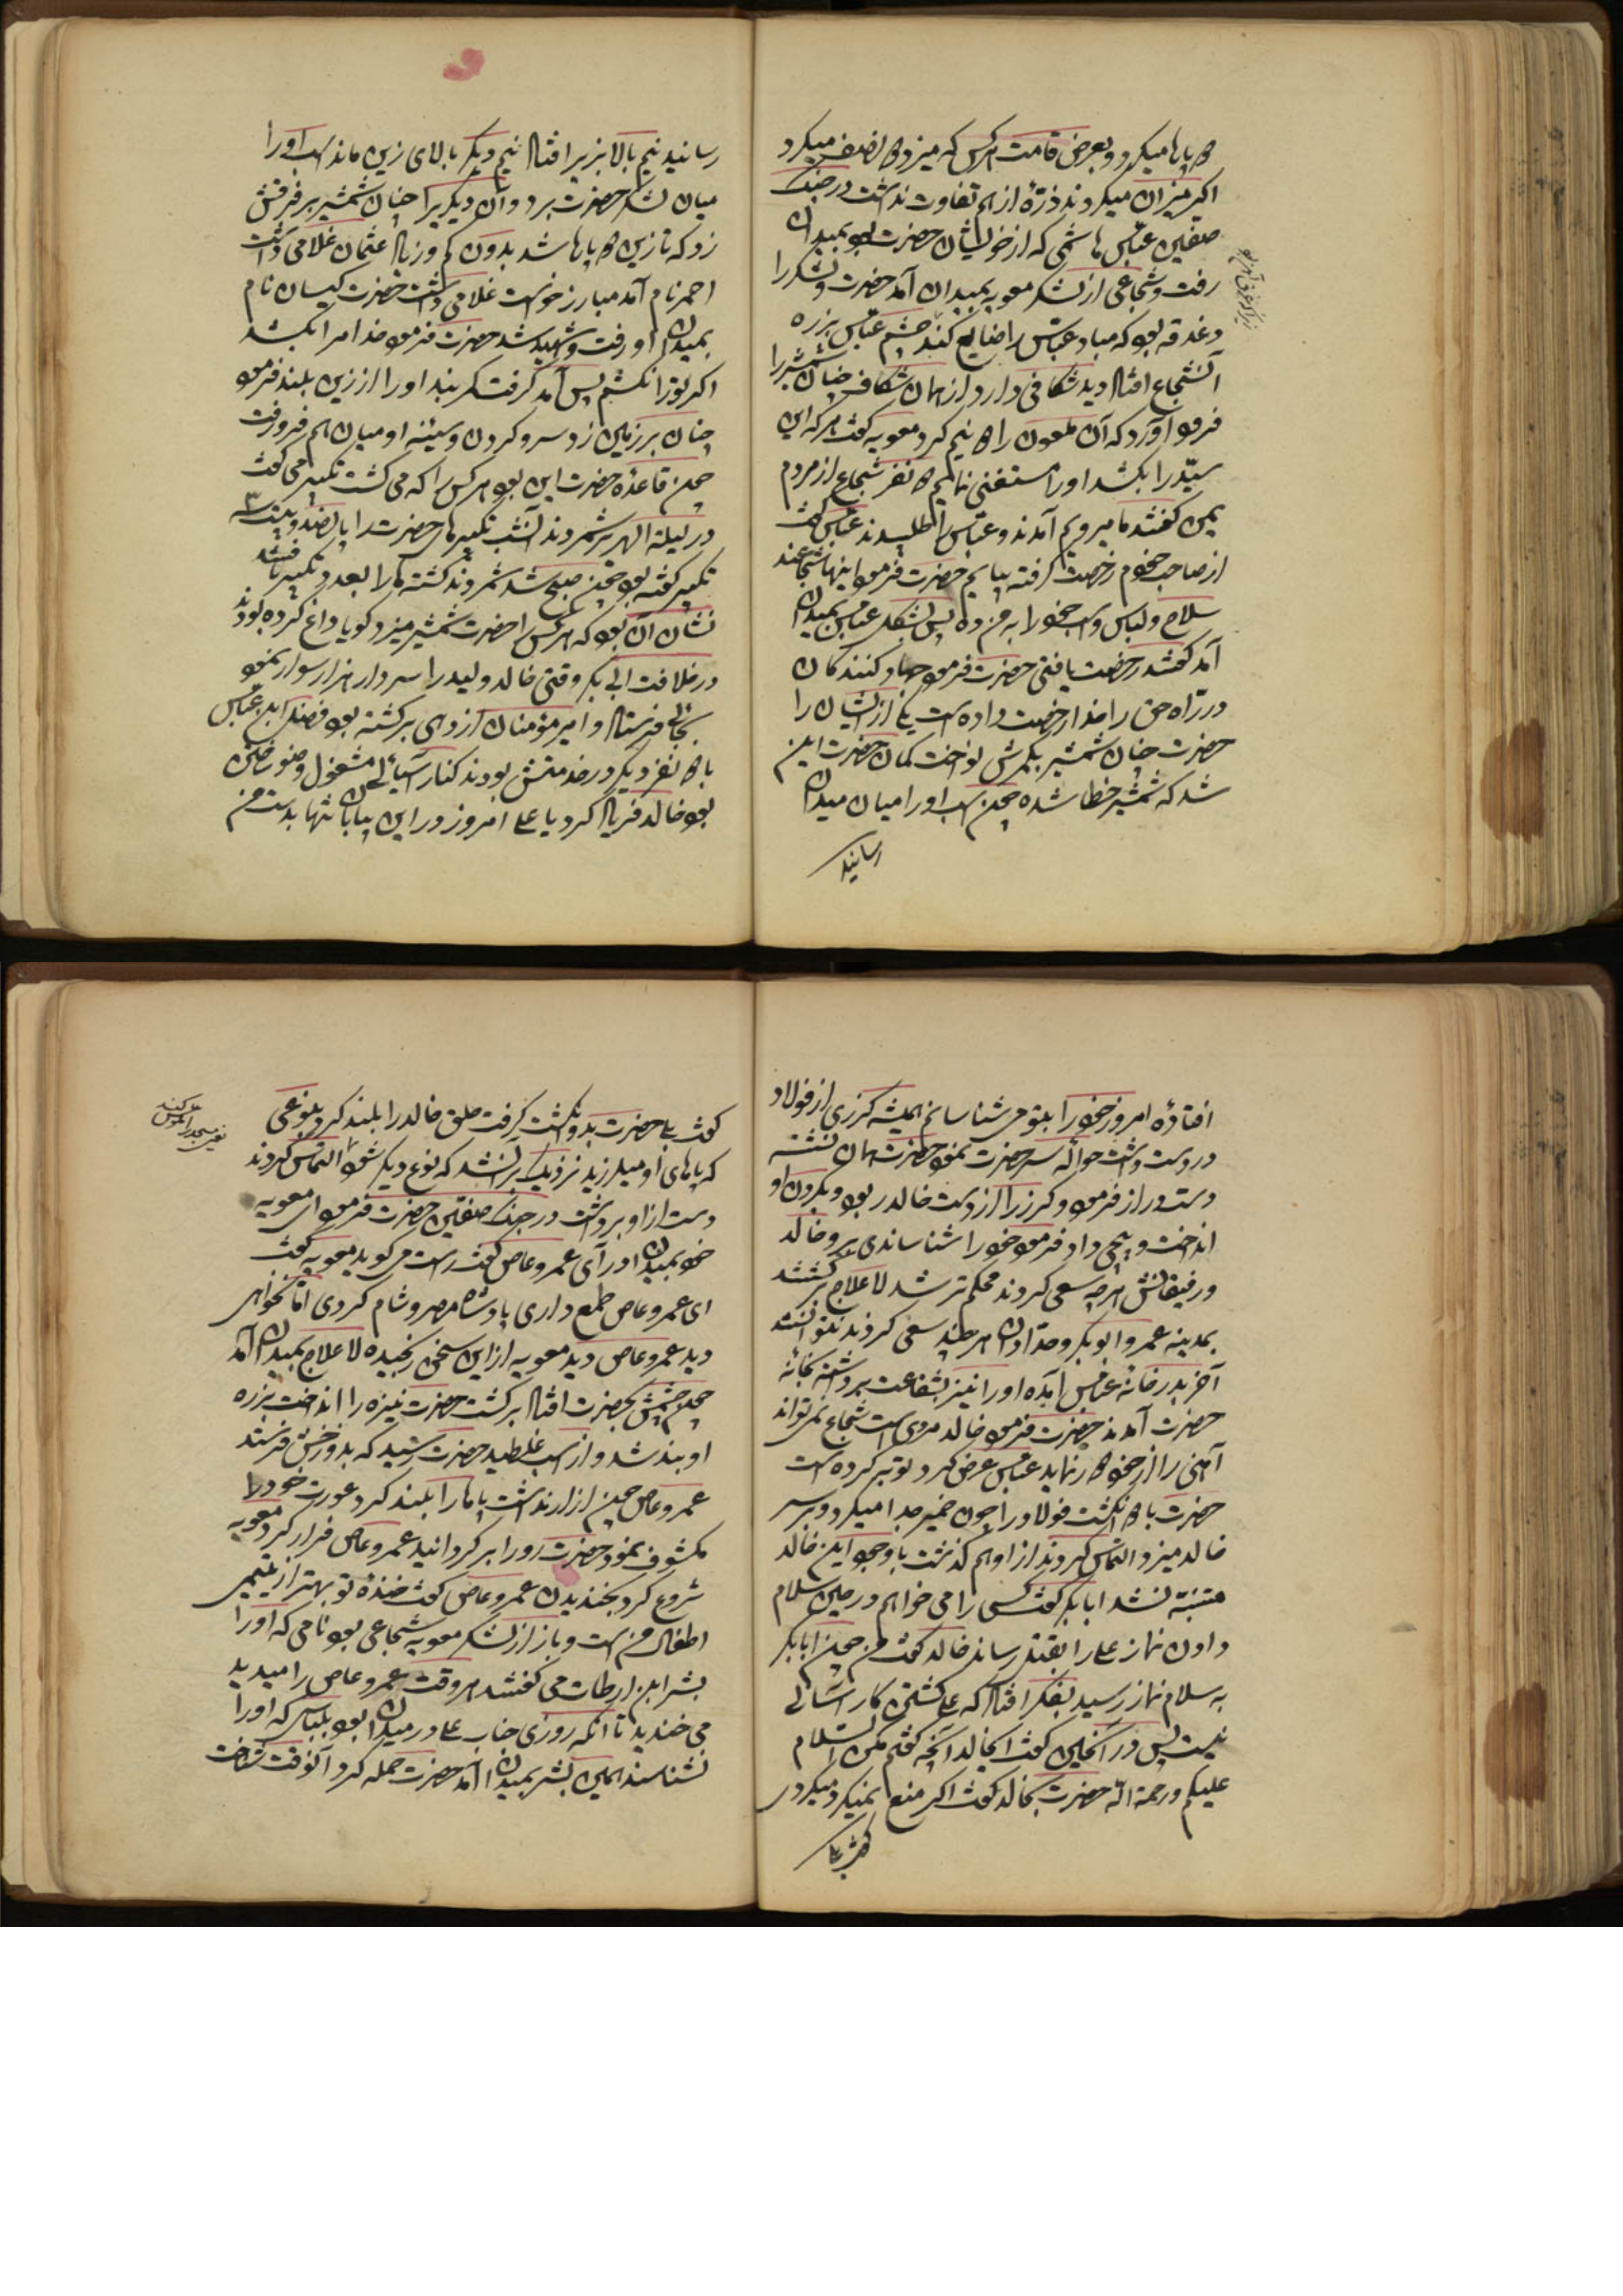 دو پاها میکرد و بعرض قامت هر کس که میزد دو نصف میکرد
اکر میزان میکردند ذرّهٔ از هم تفاوت نداشت در جنک
صفین عبّاس هاشمی که از خویشان حضرت بود بمیدان
رفت و شجاعی از لشکر معویه بمیدان آمد حضرت و لشکر را
دغدقه بود که مباد عبّاس را ضایع کند چشم عبّاس بزره
آنشجاع افتاد دید شکافی دارد از همان شکاف چنان شمشیر را
فرود آورد که آن ملعون را دو نیم کرد معویه کفت هر که این
سیّد را بکشد او را مستغنی نمایم دو نفر شجاع از مردم
یمن کفتند ما میرویم آمدند و عبّاس را طلبیدند عبّاس کفت
از صاحب خودم رخصت کرفته بیایم حضرت فرمود اینها شجاعند
سلاح و لباس و اسب خود را به من ده پس بشکل عبّاس بمیدان
آمد کفتند رخصت یافتی حضرت فرمود جهاد کنندکان
در راه حق را خدا رخصت داده است یکی از ایشان را
حضرت چنان شمشیر بکمرش نواخت کمان حضرت این
شد که شمشیر خطا شده چون اسب او را میان میدان
رسانید
رسانید نیم بالا بزیر افتاد نیم دیکر بالای زین ماند اسب او را
میان لشکر حضرت برد و آن دیکر را چنان شمشیر بر فرقش
زد که تا زین دو پاها شد بدون کم و زیاد عثمان غلامی داشت
احمر نام آمد مبارز خواست غلامی داشت حضرت کیسان نام
بمیدان او رفت و شهید شد حضرت فرمود خدا مرا بکشد
اکر تو را نکشم پس آمد کرفت کمربند او را از زین بلند فرمود
چنان بر زمین زد سر و کردن و سینه او میان هم فرو رفت
چون قاعدهٔ حضرت این بود هر کس را که می کشت تکبیر می کفت
در لیلة الهریر شمردند آنشب تکبیرهای حضرت را پانصد و بیست و سه
تکبیر کفته بود چون صبح شد شمردند کشته ها را بعدد تکبیر یافتند
نشان آن بود که هر کس را حضرت شمشیر میزد کویا داغ کرده بودند
در خلافت ابی بکر وقتی خالد ولید را سردار هزار سوار نمود
بجائی فرستاد و امیر مؤمنان از دهی برکشته بود فضل ابن عبّاس
با دو نفر دیکر در خدمتش بودند کنار آسیائی مشغول وضو ساختن
بود خالد فریاد کرد یا علی امروز در این بیابان تنها بدست من
افتادهٔ امروز خود را بتو می شناسانم همیشه کرزی از فولاد
در دست داشت حواله سر حضرت نمود حضرت همان نشسته
دست دراز فرمود و کرز را از دست خالد ربود و بکردن او
انداخت و پیچی داد فرمود خود را شناساندی برو خالد
و رفیقانش هر چه سعی کردند محکم تر شد لا علاج برکشتند
بمدینه عمر و ابوبکر و حدّادان هر چند سعی کردند نتوانستند
آخر بدر خانهٔ عبّاس آمده او را نیز بشفاعت برداشته بخانه
حضرت آمدند حضرت فرمود خالد مردی است شجاع نمی تواند
آهنی را از خود دور نماید عبّاس عرض کرد توبه کرده است
حضرت با دو انکشت فولاد را چون خمیر جدا میکرد و بر سر
خالد میزد التماس کردند از او هم کذشت با وجود این خالد
متنبّه نشد ابابکر کفت کسی را می خواهم در حین سلام
دادن نماز علی را بقتل رساند خالد کفت من چون ابابکر
به سلام نماز رسید بفکر افتاد که علی کشتن کار آسانی
نیست پس در آنحین کفت ایخالد آنچه کفتم مکن السّلام
علیکم و رحمة اللّه حضرت بخالد کفت اکر منع نمیکرد میکردی
کفت بلی
کفت بلی حضرت بدو انکشت کرفت حلق خالد را بلند کرد بنوعی
که پاهای او میلرزید نزدیک شد که نوع دیکر شود التماس کردند
دست از او برداشت در جنک صفین حضرت فرمود ای معویه
خود بمیدان در آی عمرو عاص کفت راست می کوید معویه کفت
ای عمرو عاص طمع داری پادشاه مصر و شام کردی امّا نخواهی
دید عمرو عاص دید معویه از این سخن رنجیده لا علاج بمیدان آمد
چون چشمش بحضرت افتاد برکشت حضرت نیزه را انداخت بزره
او بند شد و از اسب غلطید حضرت رسید که بدوزخش فرستد
عمرو عاص چون ازار نداشت پاها را بلند کرد عورت خود را
مکشوف نمود حضرت رو را برکردانید عمرو عاص فرار کرد معویه
شروع کرد بخندیدن عمرو عاص کفت خندهٔ تو بهتر از یتیمی
اطفال من است و باز از لشکر معویه شجاعی بود نامی که او را
بشر ابن ارطات می کفتند هر وقت عمرو عاص را میدید
می خندید تا آنکه روزی جناب علی در میدان بود بلباسی که او را
نشناسند همین بشر بمیدان آمد حضرت حمله کرد آنوقت شناخت